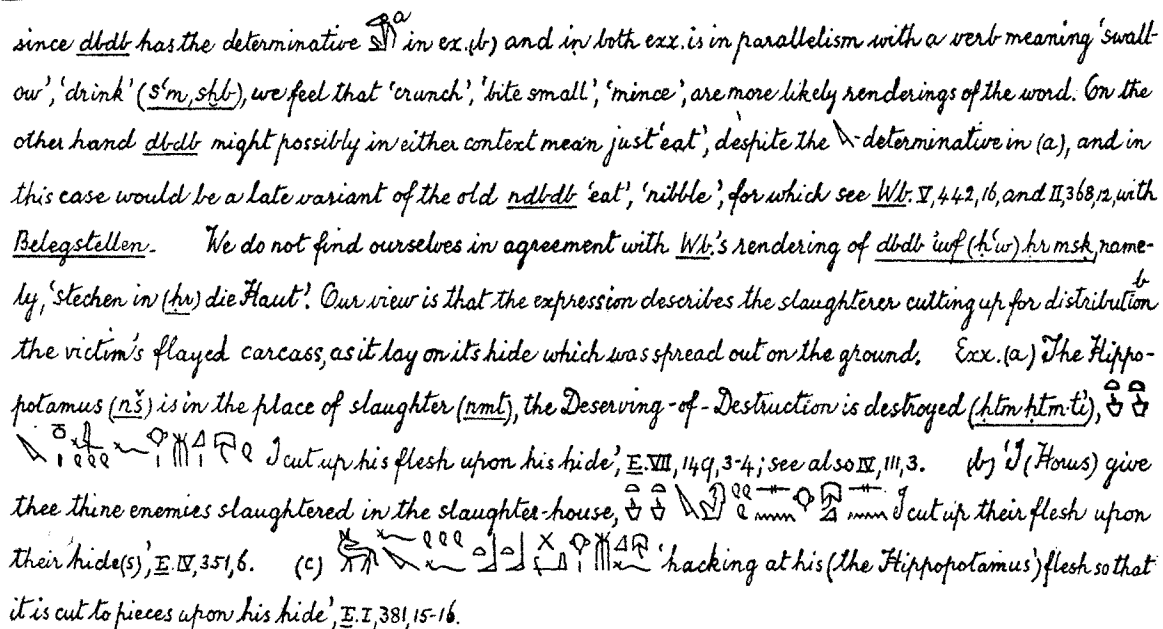 since dbdb has the determinative a in ex.(b) and in both exx. is in parallelism with a verb meaning 'swall-
ow', 'drink' (sꜥm, sḫb), we feel that 'crunch', 'bite small', 'mince', are more likely renderings of the word. On the
other hand dbdb might possibly in either context mean just 'eat', despite the -determinative in (a), and in
this case would be a late variant of the old ndbdb 'eat', 'nibble', for which see Wb. V, 442, 16, and II, 368, 12, with
Belegstellen. We do not find ourselves in agreement with Wb.'s rendering of dbdb iwf (ḥꜥw) ḥr msk, name-
ly, 'stechen in (ḥr) die Haut'. Our view is that the expression describes the slaughterer cutting up for distribution b
the victim's flayed carcass, as it lay on its hide which was spread out on the ground. Exx. (a) 'The Hippo-
potamus (nš) is in the place of slaughter (nmt), the Deserving-of-Destruction is destroyed (ḥtm ḥtm·ti),
I cut up his flesh upon his hide', E. VII, 149, 3-4; see also IV, 111, 3. (b) 'I (Horus) give
thee thine enemies slaughtered in the slaughter-house, I cut up their flesh upon
their hide(s)', E. IV, 351, 6. (c) 'hacking at his (the Hippopotamus') flesh so that
it is cut to pieces upon his hide', E. I, 381, 15-16.